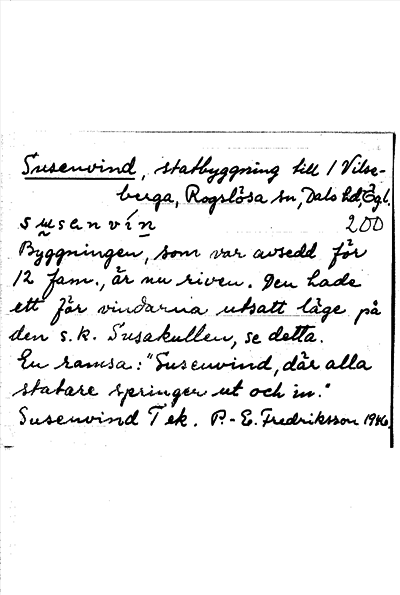 Susenvind, statbyggning till 1 Vilse-
berga, Rogslösa sn, Dals hd, Ögl.
susenvín 200
Byggningen, som var avsedd för
12 fam., är nu riven. Den hade
ett för vindarna utsatt läge på
den s.k. Susakullen, se detta.
En ramsa: "Susenvind, där alla
statare springer ut och in."
Susenvind T ek. P.-E. Fredriksson 1946.